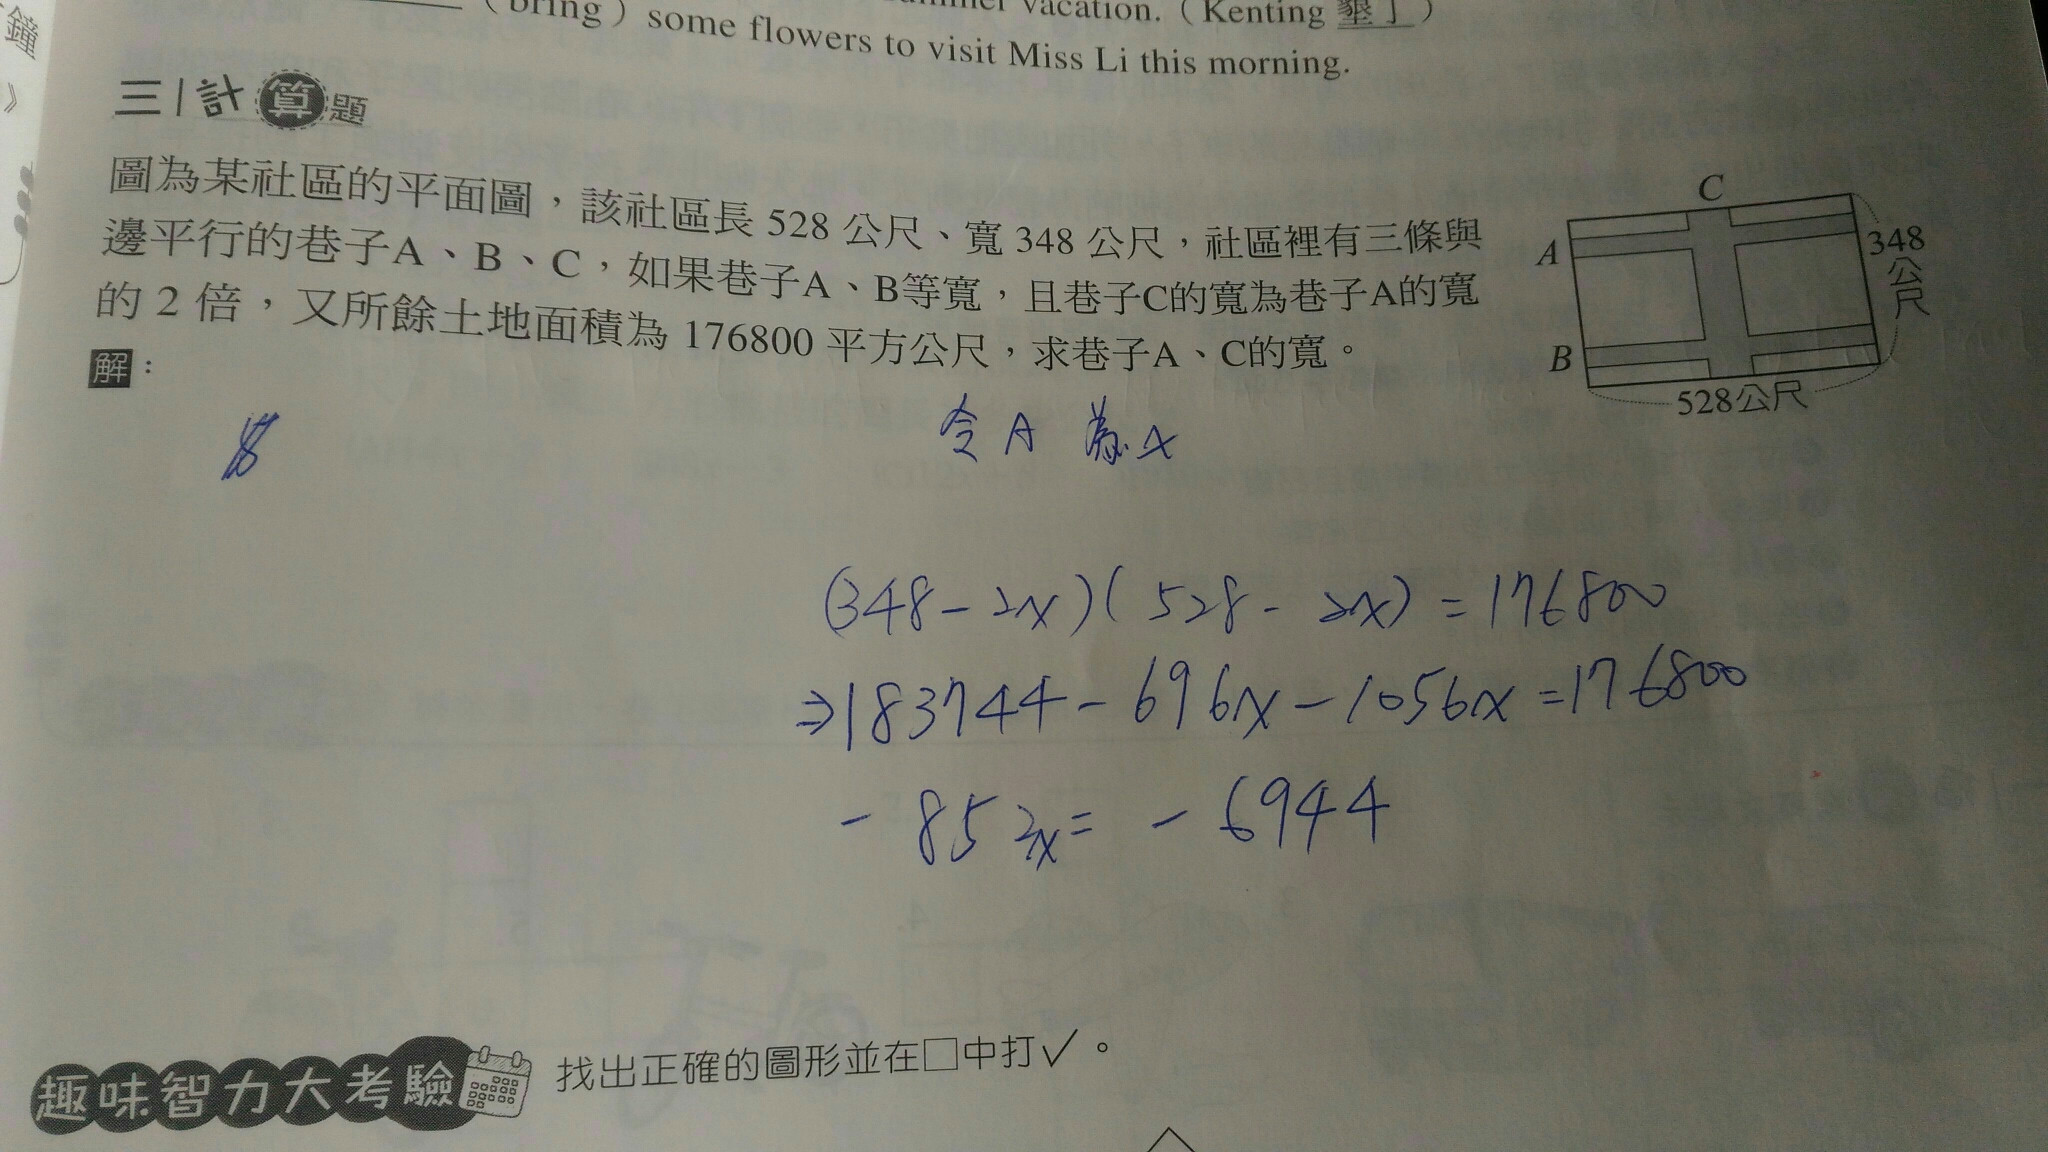 鐘
》
（bring）some flowers to visit Miss Li this morning.
vacation.（Kenting 墾丁）
三 計算題
圖為某社區的平面圖，該社區長 528 公尺、寬 348 公尺，社區裡有三條與
邊平行的巷子A、B、C，如果巷子A、B等寬，且巷子C的寬為巷子A的寬
的 2 倍，又所餘土地面積為 176800 平方公尺，求巷子A、C的寬。
解：
C
A
B
348公尺
528公尺
令 A 為 x
(348-2x)(528-2x)=176800
⇒183744-696x-1056x=176800
-852x=-6944
趣味智力大考驗 找出正確的圖形並在□中打✓。